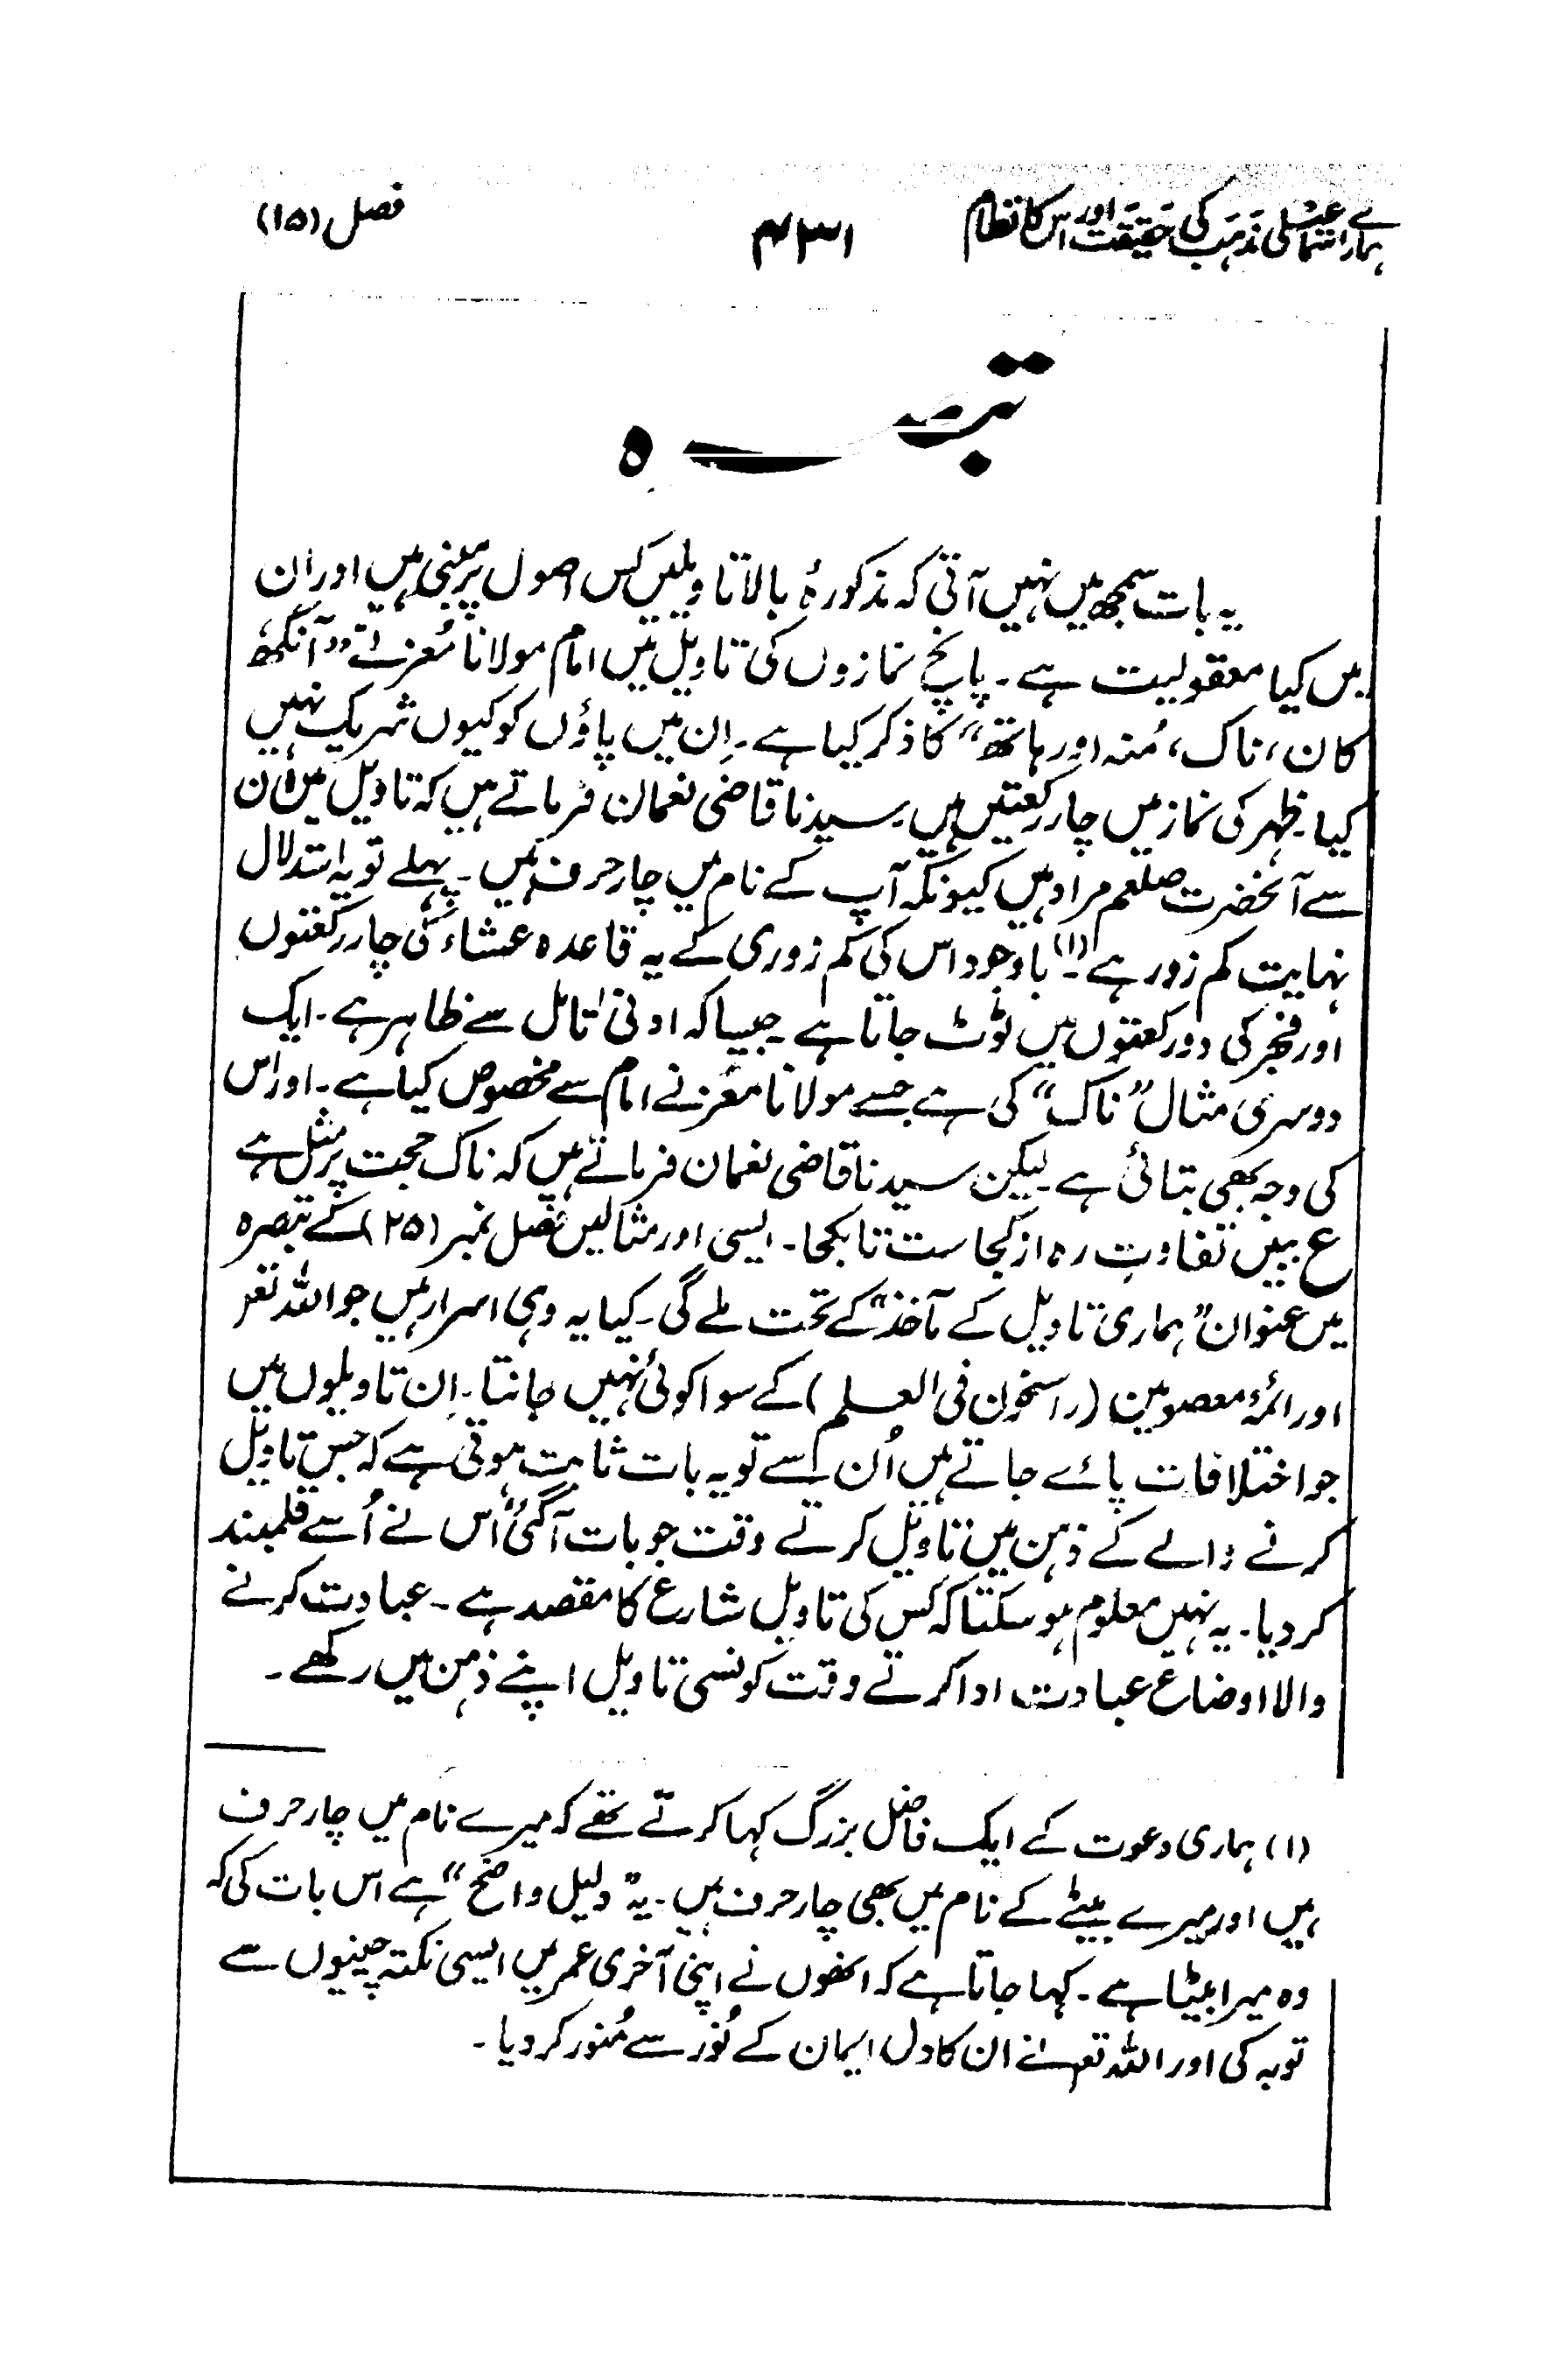 ہمارے اسماعیلی مذہب کی حقیقت اور اس کا نظام
۴۳۱
فصل (۱۵)
تبصرہ
یہ بات سمجھ میں نہیں آتی کہ مذکورۂ بالا تاویلیں کس اصول پر مبنی ہیں اور ان
میں کیا معقولیت ہے۔ پانچ نمازوں کی تاویل میں امام مولانا مُعز نے “آنکھ،
کان، ناک، مُنہ اور ہاتھ” کا ذکر کیا ہے۔ اِن میں پاؤں کو کیوں شریک نہیں
کیا۔ ظہر کی نماز میں چار رکعتیں ہیں۔ سیدنا قاضی نعمان فرماتے ہیں کہ تاویل میں ان
سے آنحضرت صلعم مراد ہیں کیونکہ آپ کے نام میں چار حرف ہیں۔ پہلے تو یہ استدلال
نہایت کم زور ہے۔(۱) باوجود اس کی کم زوری کے یہ قاعدہ عشاء کی چار رکعتوں
اور فجر کی دو رکعتوں میں ٹوٹ جاتا ہے۔ جیسا کہ ادنیٰ تامل سے ظاہر ہے۔ ایک
دوسری مثال “ناک” کی ہے جسے مولانا معز نے امام سے مخصوص کیا ہے۔ اور اس
کی وجہ بھی بتائی ہے۔ لیکن سیدنا قاضی نعمان فرماتے ہیں کہ ناک حجت پر مثل ہے
ع ببیں تفاوتِ رہ از کجا ست تا بکجا۔ ایسی اور مثالیں فصل نمبر (۲۵) کے تبصرہ
میں عنوان “ہماری تاویل کے مآخذ” کے تحت ملے گی۔ کیا یہ وہی اسرار ہیں جو اللہ تعہ
اور ائمۂ معصومین (راسخون فی العلم) کے سوا کوئی نہیں جانتا۔ اِن تاویلوں میں
جو اختلافات پائے جاتے ہیں اُن سے تو یہ بات ثابت ہوتی ہے کہ جس تاویل
کرنے والے کے ذہن میں تاویل کرتے وقت جو بات آگئی اُس نے اُسے قلمبند
کر دیا۔ یہ نہیں معلوم ہو سکتا کہ کس کی تاویل شارع کا مقصد ہے۔ عبادت کرنے
والا اوضاع عبادت ادا کرتے وقت کونسی تاویل اپنے ذہن میں رکھے۔
(۱) ہماری دعوت کے ایک فاضل بزرگ کہا کرتے تھے کہ میرے نام میں چار حرف
ہیں اور میرے بیٹے کے نام میں بھی چار حرف ہیں۔ یہ “دلیل واضح” ہے اس بات کی کہ
وہ میرا بیٹا ہے۔ کہا جاتا ہے کہ انھوں نے اپنی آخری عمر میں ایسی نکتہ چینیوں سے
توبہ کی اور اللہ تعہ نے ان کا دل ایمان کے نُور سے مُنور کر دیا۔